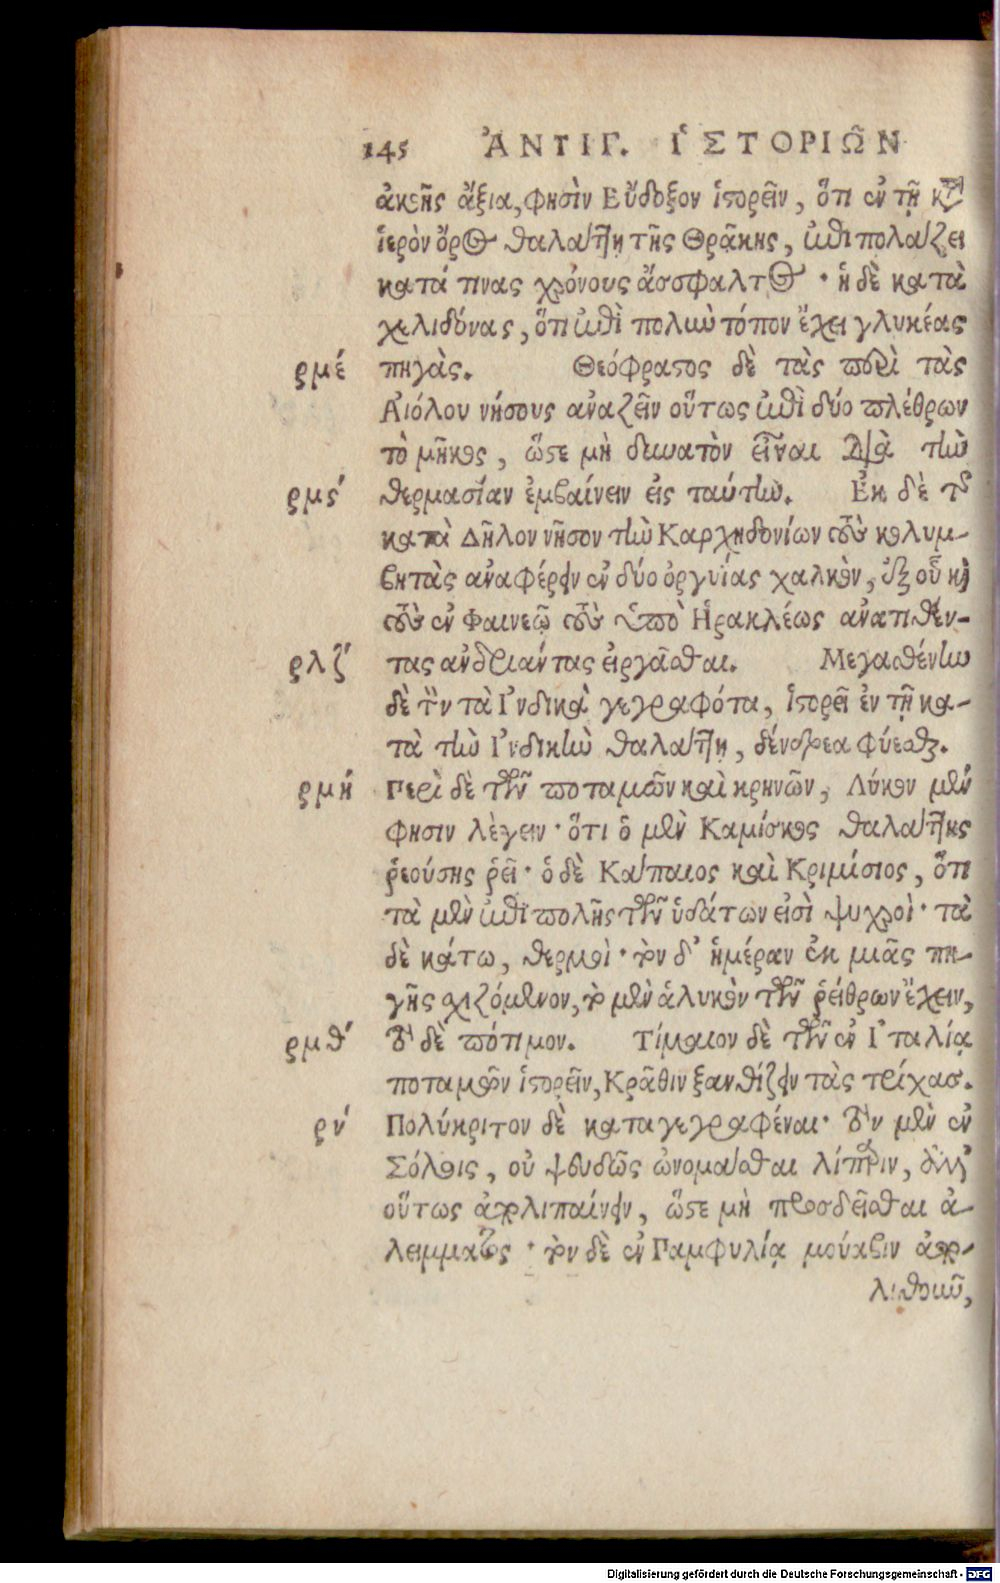 145 ἈΝΤΙΓ. ἹΣΤΟΡΙΩ͂Ν
ἀκοῆς ἄξια, φησὶν Εὔδοξον ἱστορεῖν, ὅτι ἐν τῇ κατὰ
ἱερὸν ὄρος θαλάττῃ τῆς Θρᾴκης, ἐπιπολάζει
κατά τινας χρόνους ἄσφαλτος · ἡ δὲ κατὰ
χελιδόνας, ὅτι ἐπὶ πολὺν τόπον ἔχει γλυκέας
ρμέ πηγὰς. Θεόφραστος δὲ τὰς περὶ τὰς
Αἰόλου νήσους ἀναζεῖν οὕτως ἐπὶ δύο πλέθρων
τὸ μῆκος, ὥστε μὴ δυνατὸν εἶναι διὰ τὴν
ρμϛ΄ θερμασίαν ἐμβαίνειν εἰς ταύτην. Ἐκ δὲ τοῦ
κατὰ Δῆλον νῆσον τὴν Καρχηδονίων τοὺς κολυμ-
βητὰς ἀναφέρειν ἐν δύο ὀργυίας χαλκὸν, ἐξ οὗ καὶ
τοὺς ἐν Φαινεῷ τοὺς ὑπὸ Ἡρακλέως ἀνατιθέν-
ρλζ΄ τας ἀνδριάντας εἰργᾶσθαι. Μεγασθένην
δὲ τὸν τὰ Ἰνδικὰ γεγραφότα, ἱστορεῖ ἐν τῇ κα-
τὰ τὴν Ἰνδικὴν θαλάττῃ, δένδρεα φύεσθαι.
ρμή Περὶ δὲ τῶν ποταμῶν καὶ κρηνῶν, Λύκον μὲν
φησιν λέγειν · ὅτι ὁ μὲν Καμίσκος θαλάττης
ῥεούσης ῥεῖ · ὁ δὲ Κάπαιος καὶ Κριμίσιος, ὅτι
τὰ μὲν ἐπιπολῆς τῶν ὑδάτων εἰσὶ ψυχροὶ · τὰ
δὲ κάτω, θερμοὶ · τὸν δ' ἡμέραν ἐκ μιᾶς πη-
γῆς σχιζόμενον, τὸ μὲν ἁλυκὸν τῶν ῥείθρων ἔχειν,
ρμθ΄ τὸ δὲ πότιμον. Τίμαιον δὲ τῶν ἐν Ἰταλίᾳ
ποταμῶν ἱστορεῖν, Κρᾶθιν ξανθίζειν τὰς τρίχας.
ρν΄ Πολύκριτον δὲ καταγεγραφέναι · τὸν μὲν ἐν
Σόλοις, οὐ ψευδῶς ὠνομάσθαι λίπαριν, ἀλλ'
οὕτως ἀπολιπαίνειν, ὥστε μὴ προσδεῖσθαι ἀ-
λείμματος · τὸν δὲ ἐν Παμφυλίᾳ μούαβιν ἀπο-
λιθοῦν,
Digitalisierung gefördert durch die Deutsche Forschungsgemeinschaft - DFG